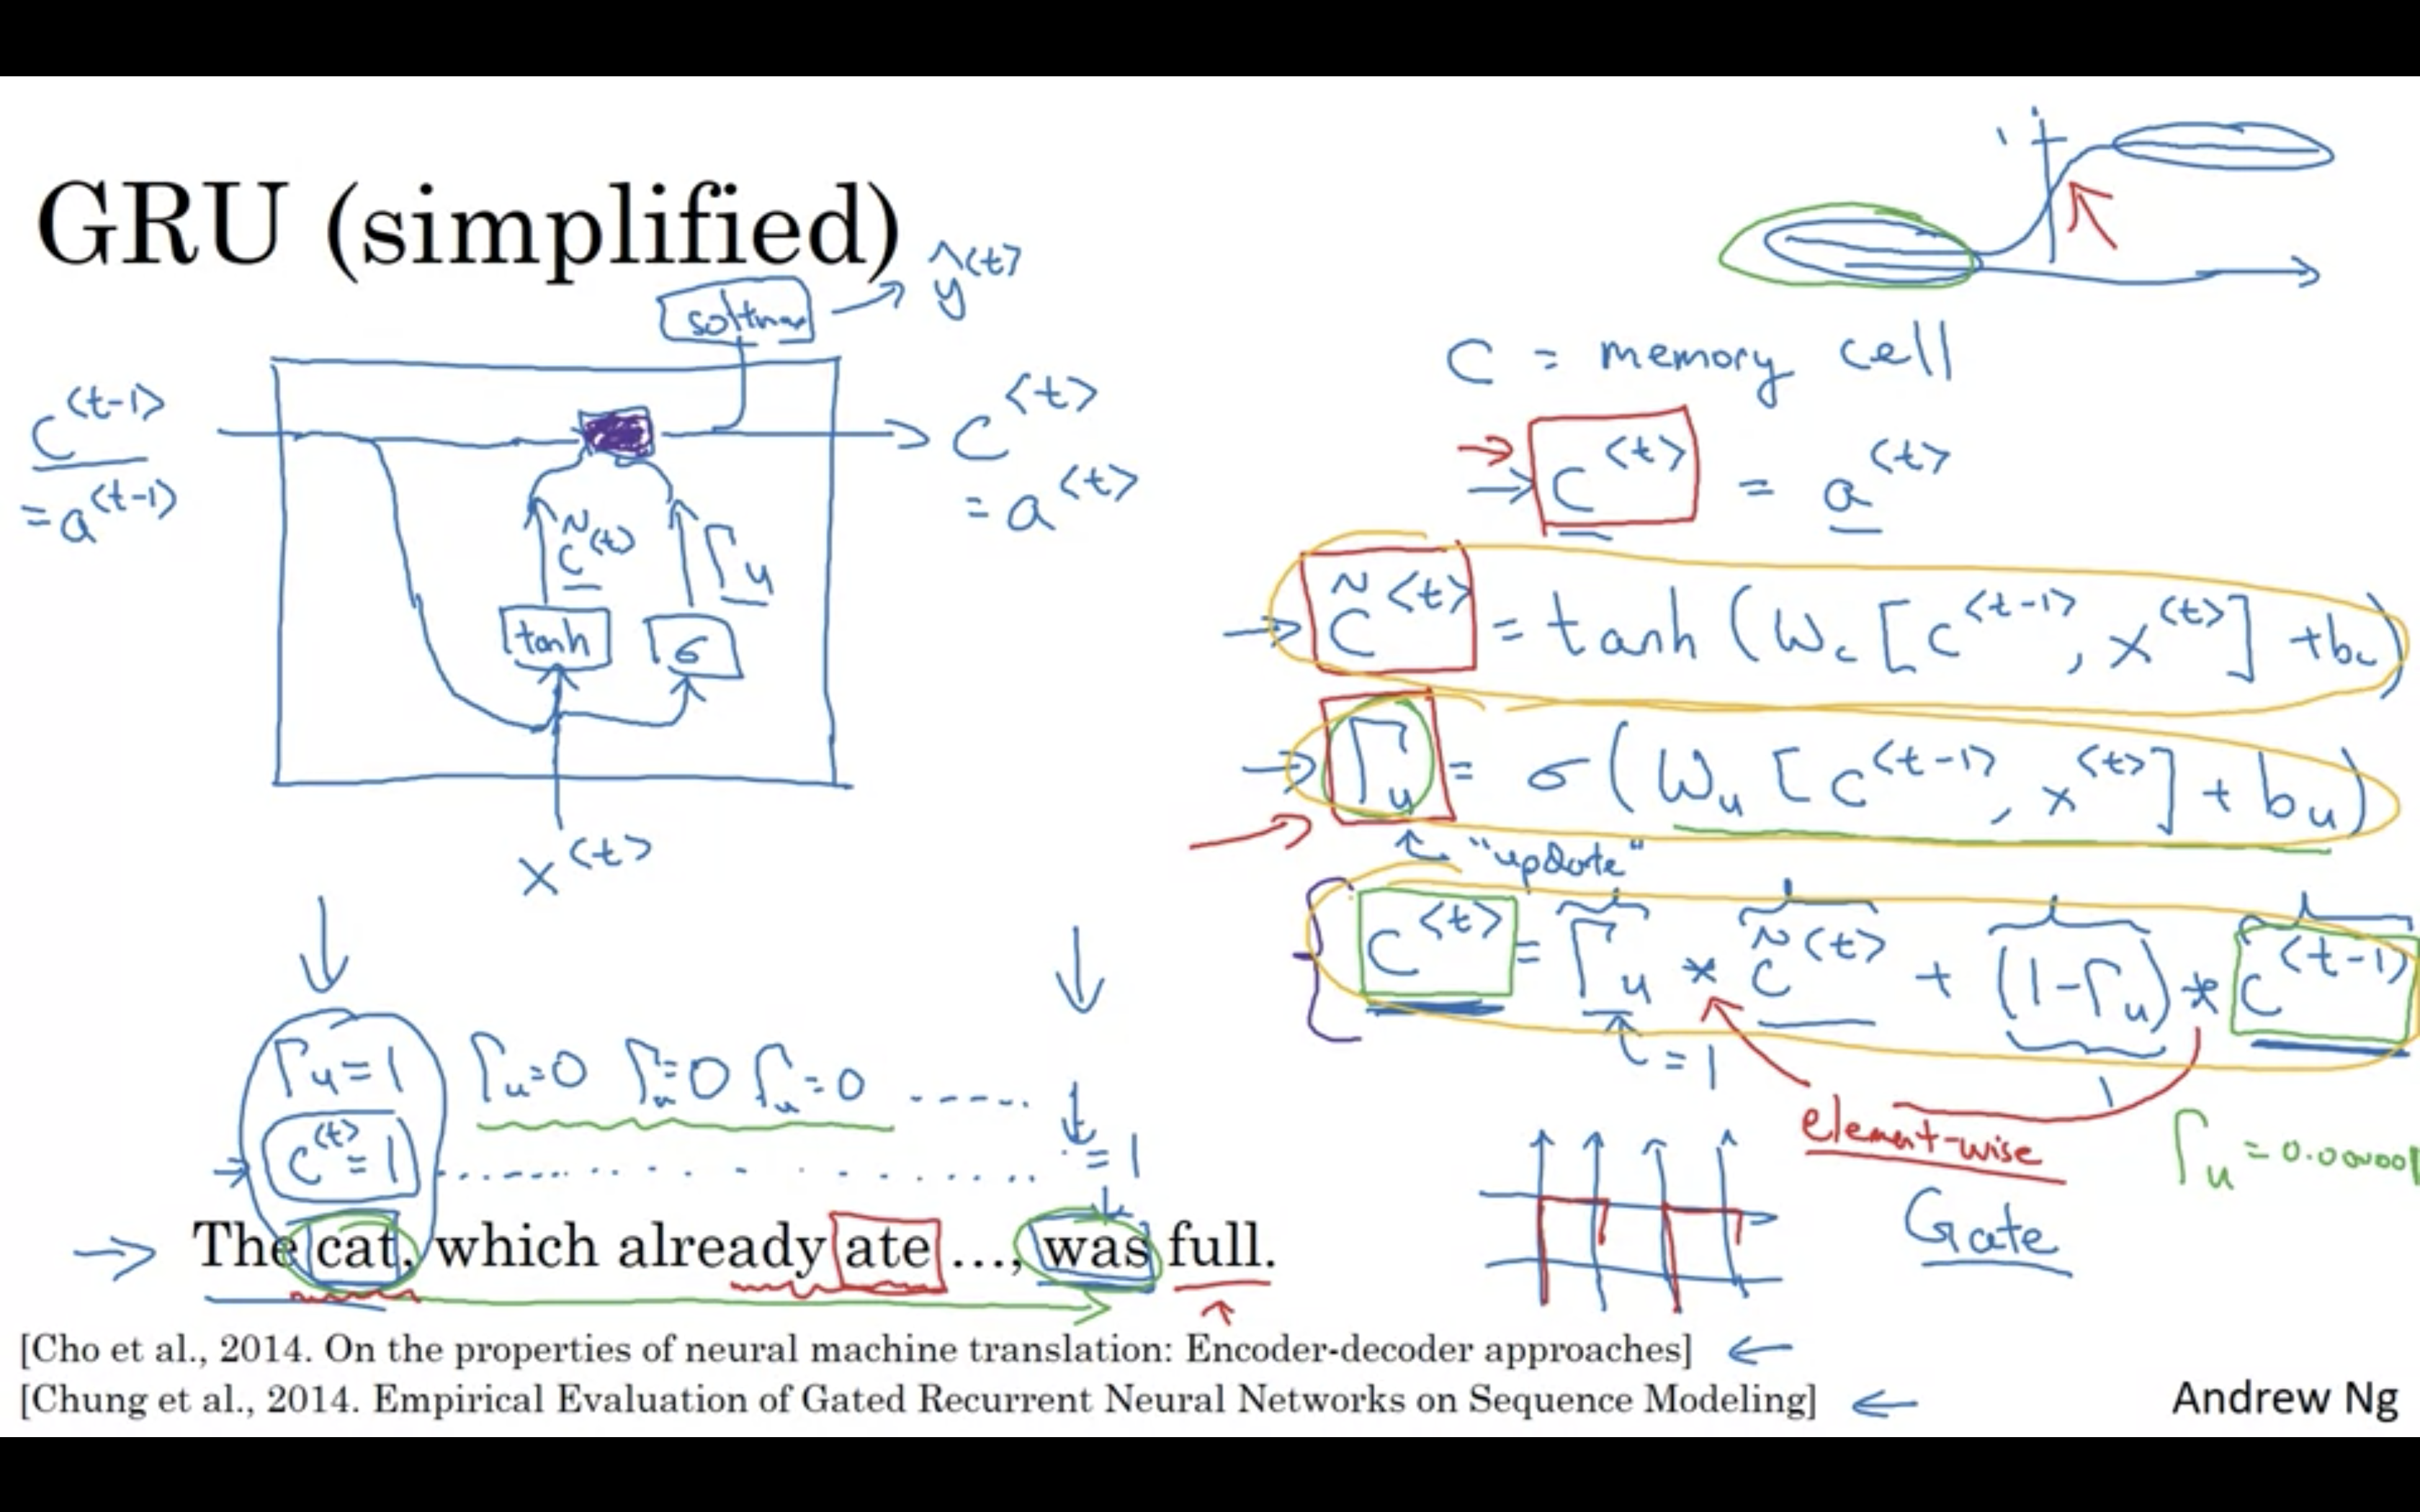 GRU (simplified)
softmax → ŷ<t>
c<t-1>
= a<t-1>
c̃<t>
Γu
tanh
σ
c<t>
= a<t>
x<t>
1
C = memory cell
c<t> = a<t>
c̃<t> = tanh (Wc [c<t-1>, x<t>] + bc)
Γu = σ (Wu [c<t-1>, x<t>] + bu)
"update"
c<t> = Γu * c̃<t> + (1-Γu) * c<t-1>
= 1
element-wise
Γu = 0.000001
Gate
Γu = 1 Γu = 0 Γu = 0 Γu = 0 .....
c<t> = 1 ..... = 1
The cat, which already ate …, was full.
[Cho et al., 2014. On the properties of neural machine translation: Encoder-decoder approaches] ←
[Chung et al., 2014. Empirical Evaluation of Gated Recurrent Neural Networks on Sequence Modeling] ←
Andrew Ng